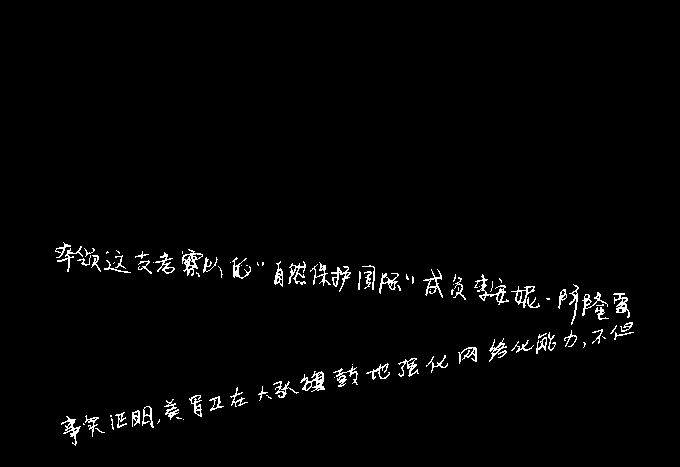 率领这支考察队的“自然保护国际”成员李安妮·阿隆索
事实证明,美军正在大张旗鼓地强化网络化能力,不但